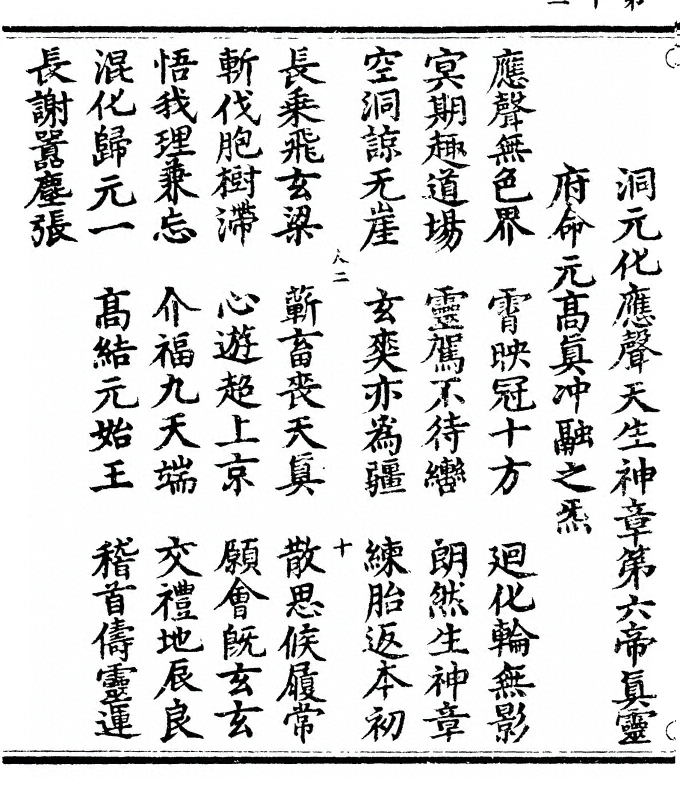 洞元化應聲天生神章第六帝眞靈
府命元高眞冲融之炁
應聲無色界　霄映冠十方　廻化輪無影
冥期趣道場　靈駕不待轡　朗然生神章
空洞諒无崖　玄爽亦為疆　練胎返本初
人二　十
長乗飛玄梁　蘄畜喪天眞　散思候履常
斬伐胞樹滯　心遊超上京　願會旣玄玄
悟我理兼忘　介福九天端　交禮地辰良
混化歸元一　高結元始王　稽首儔靈運
長謝囂塵張